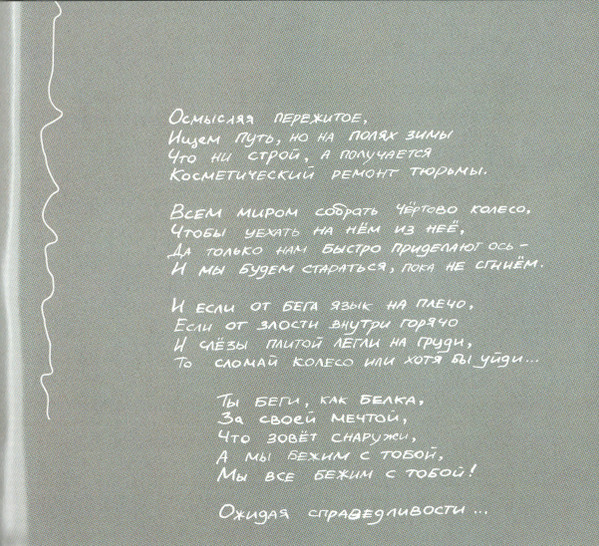 Осмысляя пережитое,
Ищем путь, но на полях зимы
Что ни строй, а получается
Косметический ремонт тюрьмы.
Всем миром собрать чёртово колесо,
Чтобы уехать на нём из неё,
Да только нам быстро приделают ось –
И мы будем стараться, пока не сгниём.
И если от бега язык на плечо,
Если от злости внутри горячо
И слёзы плитой легли на груди,
То сломай колесо или хотя бы уйди...
Ты беги, как белка,
За своей мечтой,
Что зовёт снаружи,
А мы бежим с тобой,
Мы все бежим с тобой!
Ожидая справедливости...